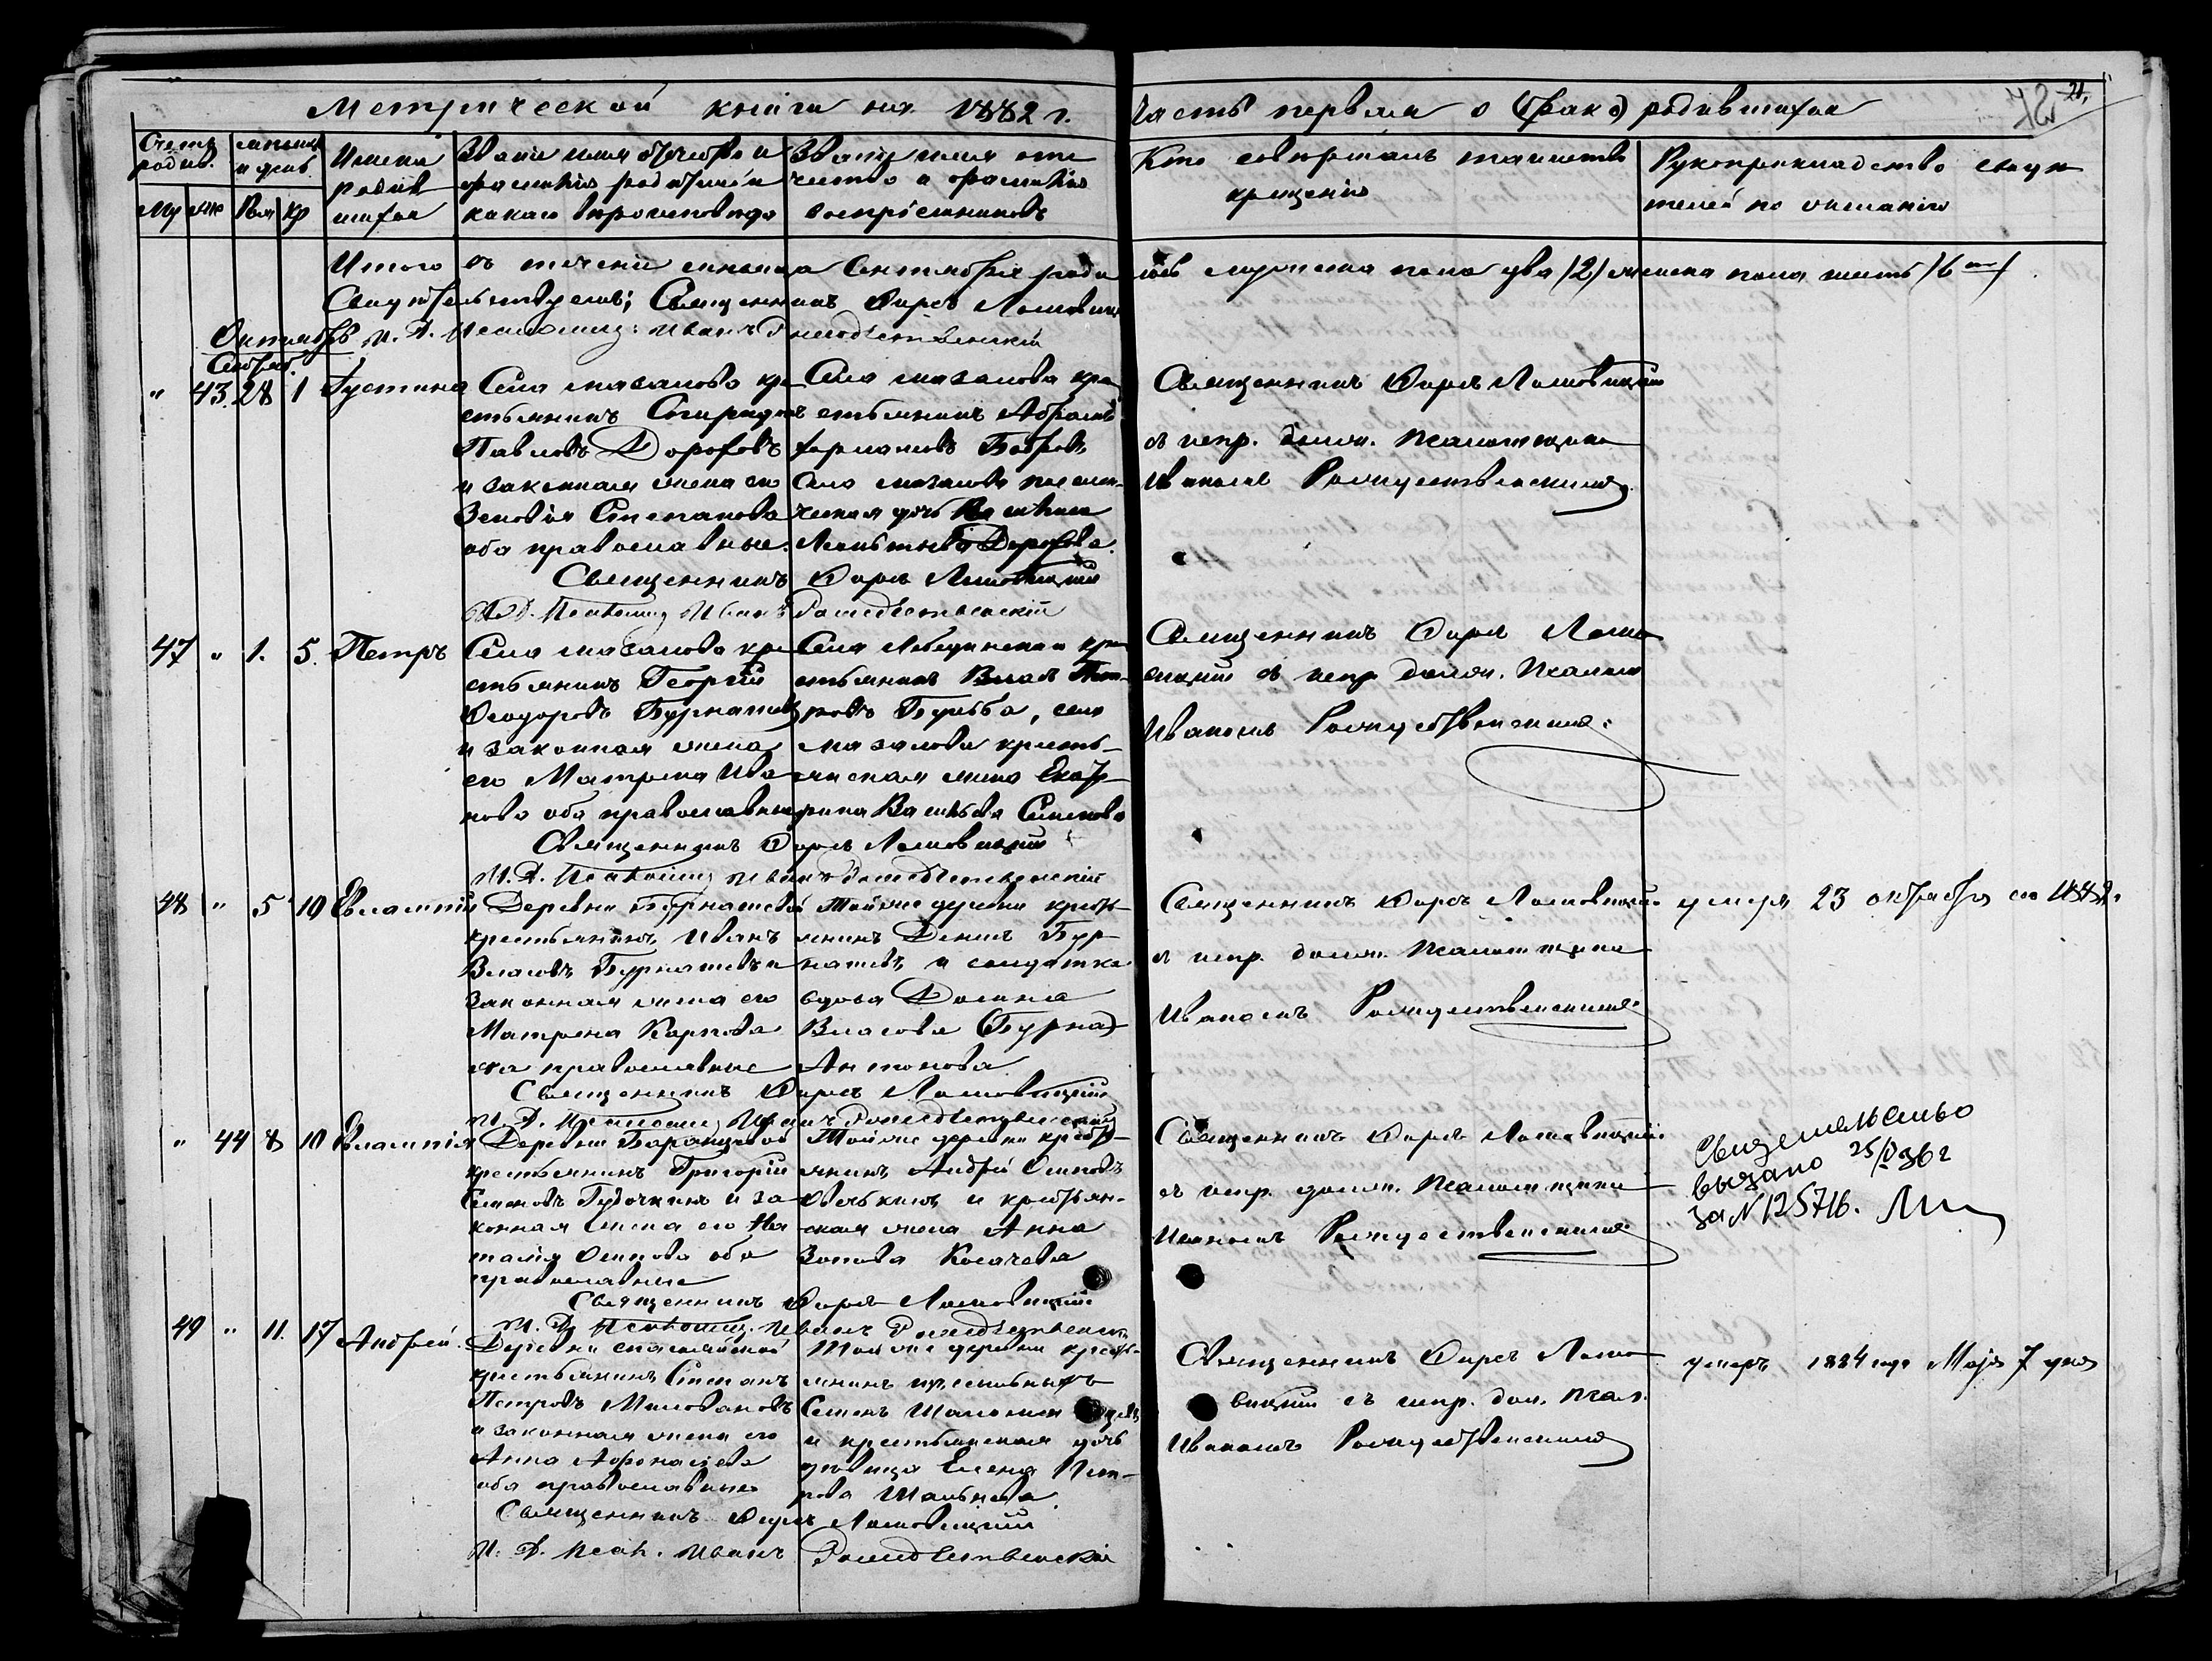 Метрической книги на 1882 г. Часть первая о родившихся
Счетъ родив. месяцъ и день Имена родив шихся
Званіе имя отчество и фамилія родителей и какаго вѣроисповѣда
Званіе имя оте чество и фамилія воспріемниковъ
Кто совершалъ таинство крещенія
Рукоприкладство свидѣ телей по желанію
Му же Рож кр
Итого въ теченіи месяца Сентября роди лось мужеска пола два /2/ женска пола шесть /6/
Священникъ Фирсъ
Октябрь И. Д. Псаломщ: Иванъ Рождественскій
Сентяб.
" 43. 28 1 Іустина
Села Мазалова кре
стьянинъ Спиридонъ
Павловъ Дорофовъ
и законная жена его
Зеновія Степанова
оба православные.
Села Мазалова кре
стьянинъ Абрамъ
Бобровъ,
Села Мазалова
дочь
Дорофова.
Священникъ Фирсъ
въ испр. долж. Псаломщика
Иваномъ Рождественскимъ
Священникъ Фирсъ
И. Д. Псаломщ Иванъ Рождественскій
47 " 1. 5. Петръ
Села Мазалова кре
стьянинъ Георгій
Феодоровъ Бурнашевъ
и законная жена
его Матрона Ива
нова оба православные
Села Лебедянскаго кре
стьянинъ Власъ Пет-
ровъ Бульба, села
Мазалова кресть-
янская жена Екате
рина Васильева Семенова
Священникъ Фирсъ
въ испр долж. Псалом
Иваномъ Рождественскимъ.
Священникъ Фирсъ
И. Д. Псаломщ Иванъ Рождественскій
48 " 5 10 Евлампій
Деревни Бурнашевой
крестьянинъ Иванъ
Власовъ Бурнашевъ и
законная жена его
Матрена Карпова
оба православные
Той же деревни кресть
янинъ Денисъ Бур
нашевъ и солдатка
вдова Домна
Власова (Бурна)
Антонова
Священникъ Фирсъ
въ испр. долж. Псаломщика
Иваномъ Рождественскимъ
умеръ 23 октября 1882.
Священникъ Фирсъ
И. Д. Псаломщ Иванъ Рождественскій
" 44 8 10 Евлампія
Деревни
крестьянинъ Григорій
Семеновъ Гудочкинъ и за-
конная жена его На
талія Осипова оба
православные
Той же деревни кресть-
янинъ Андрей Осиповъ
и крестьян-
ская жена Анна
Зотова Косачева
Священникъ Фирсъ
въ испр. долж. Псаломщика
Иваномъ Рождественскимъ
Свидетельство
выдано 25/V 36 г
за N 125716.
Священникъ Фирсъ
И. Д. Псаломщ. Иванъ Рождественскій
49 " 11. 17 Андрей.
Деревни
крестьянинъ Степанъ
Петровъ Миловановъ
и законная жена его
Анна Афонасіева
оба православные
Той же деревни кресть-
янинъ
Семенъ
и крестьянская дочь
девица Елена Пет-
рова
Священникъ Фирсъ
съ испр. дол. Псал.
Иваномъ Рождественскимъ
умеръ 1884 года Мая 7 дня
Священникъ Фирсъ
И. Д. Псал. Иванъ Рождественскій